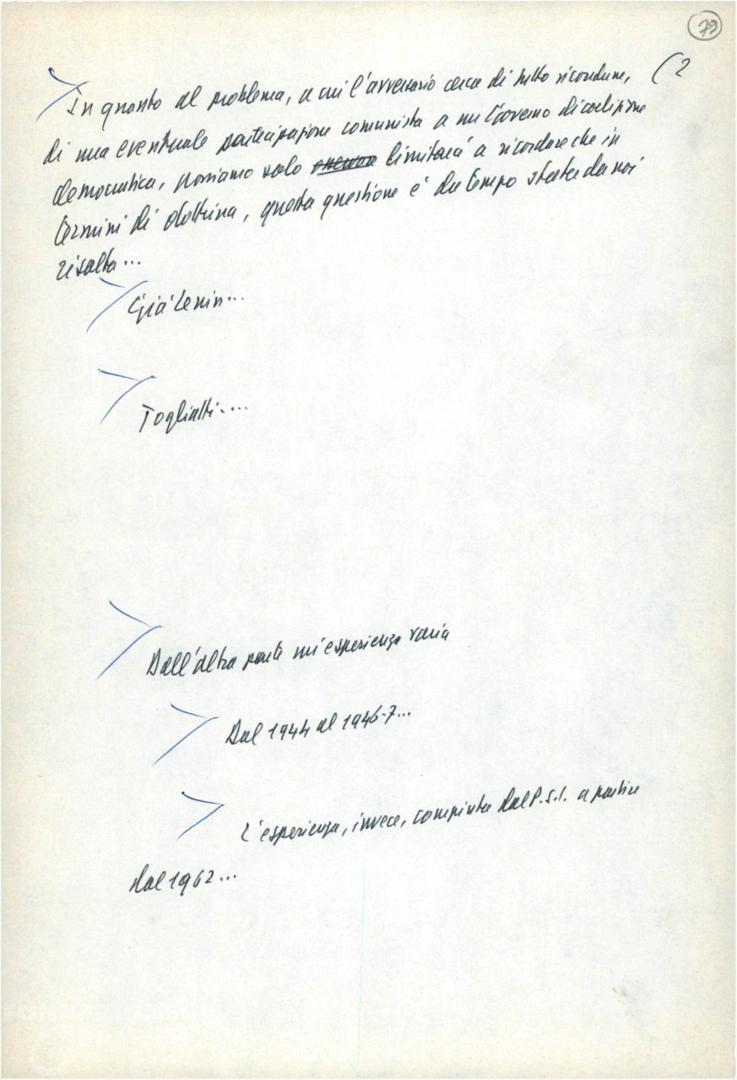 79
(2
In quanto al problema, a cui l'avversario cerca di tutto ricondurre,
di una eventuale partecipazione comunista a un Governo di coalizione
democratica, possiamo solo limitarci a ricordare che in
termini di dottrina, questa questione è da tempo stata da noi
risolta...
Già Lenin...
Togliatti....
Dall'altra parte un'esperienza varia
Dal 1944 al 1946-7...
L'esperienza, invece, compiuta dal P.S.I. a partire
dal 1962...